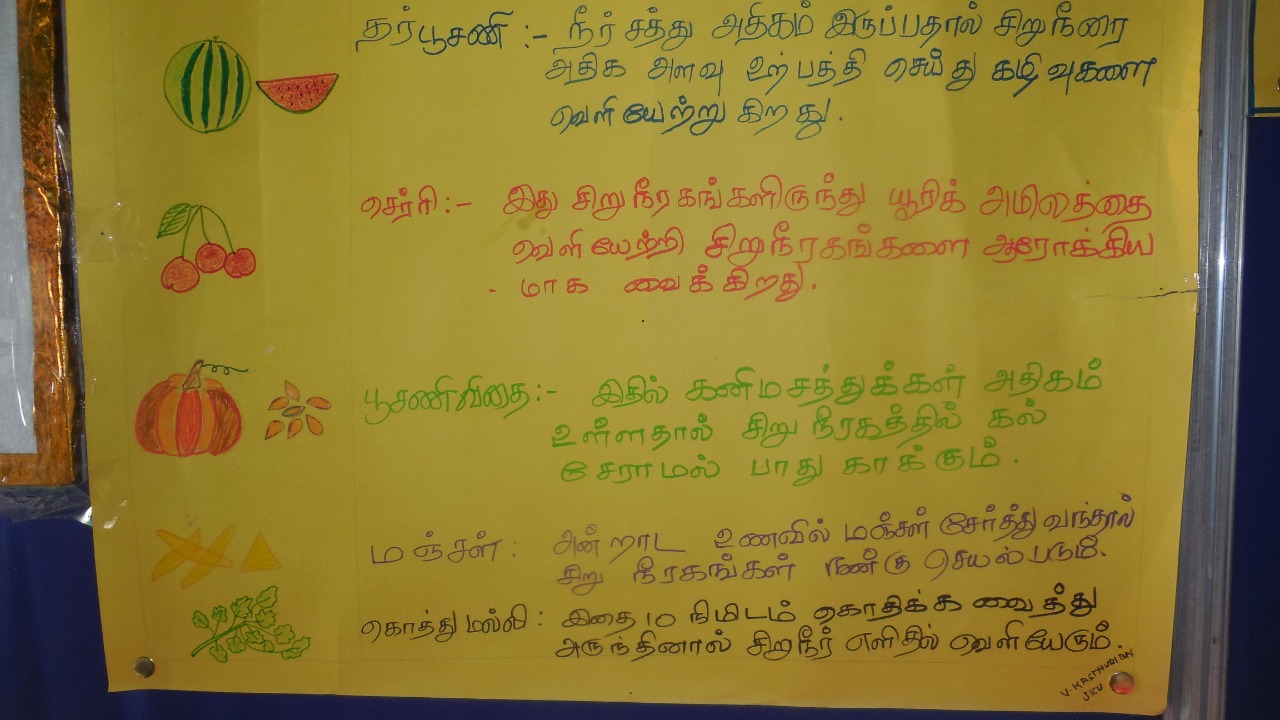 தர்பூசணி :- நீர் சத்து அதிகம் இருப்பதால் சிறுநீரை
அதிக அளவு உற்பத்தி செய்து கழிவுகளை
வெளியேற்றுகிறது.
செர்ரி :- இது சிறுநீரகங்களிருந்து யூரிக் அமிலத்தை
வெளியேற்றி சிறுநீரகங்களை ஆரோக்கிய
- மாக வைக்கிறது.
பூசணிவிதை :- இதில் கனிமசத்துக்கள் அதிகம்
உள்ளதால் சிறு நீரகத்தில் கல்
சேராமல் பாதுகாக்கும்.
மஞ்சள் : அன்றாட உணவில் மஞ்சள் சேர்த்து வந்தால்
சிறு நீரகங்கள் நன்கு செயல்படும்.
கொத்துமல்லி : இதை 10 நிமிடம் கொதிக்க வைத்து
அருந்தினால் சிறுநீர் எளிதில் வெளியேரும்.
V. KASTHURI